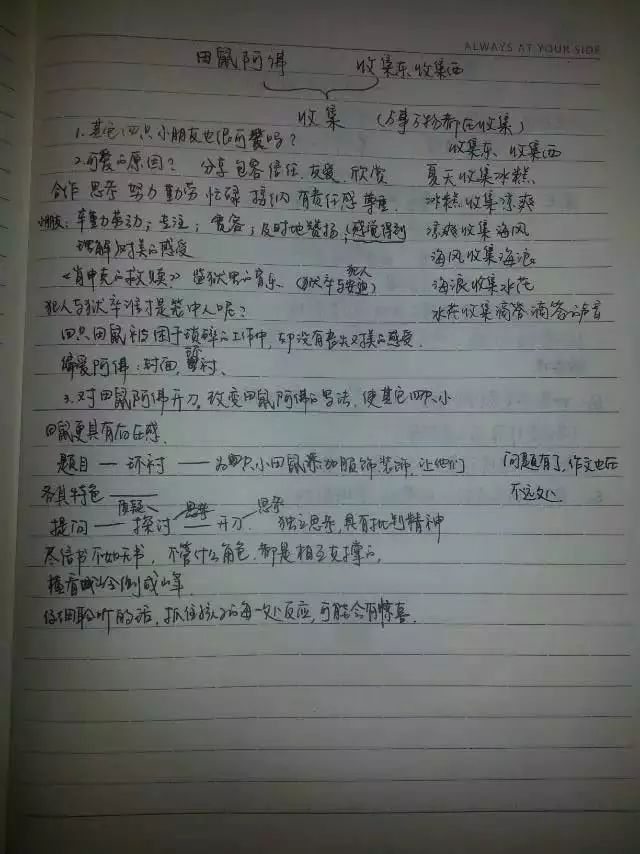 ALWAYS AT YOUR SIDE
田鼠阿佛 收集东、收集西
收集 (万事万物都在收集)
1.其它四只小朋友也很可爱吗? 收集东、收集西
2.可爱的原因? 分享 包容 信任、友爱、欣赏 夏天收集冰糕
合作 思考 努力 勤劳 忙碌 接纳 有责任感 尊重. 冰糕收集凉爽
辛勤劳动;专注;宽容;及时地赞扬;(感觉得到 凉爽收集海风
理解)对美的感受 海风收集海浪
《肖申克的救赎》 监狱里的音乐、(狱卒与犯人) 海浪收集水花
犯人与狱卒谁才是笼中人呢? 水花收集滴答滴答的声音
四只田鼠被困于琐碎的工作中,却没有丧失对美的感受.
偏爱阿佛:封面、环衬、
3.对田鼠阿佛开刀,改变田鼠阿佛的写法,使其它四只小
田鼠更具有存在感.
题目——环衬——为四只小田鼠添加服饰装饰,让他们 问题有了,作文也在
各具特色 不远处.
质疑 思考 思考
提问——探讨——开刀 独立思考,具有批判精神
尽信书不如无书, 不管什么角色,都是相互支撑的,
横看成岭侧成峰.
仔细聆听的话,抓住孩子的每一处反应,可能会有惊喜.